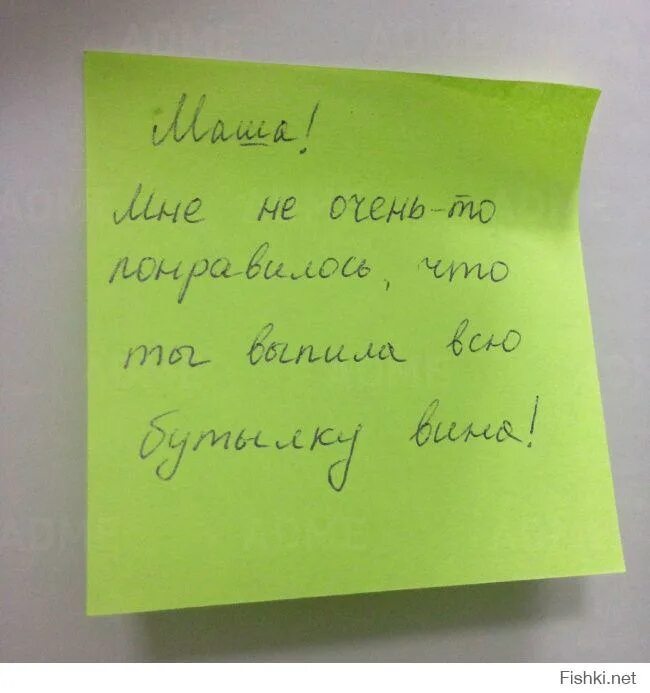 Маша!
Мне не очень-то
понравилось, что
ты выпила всю
бутылку вина!
Fishki.net